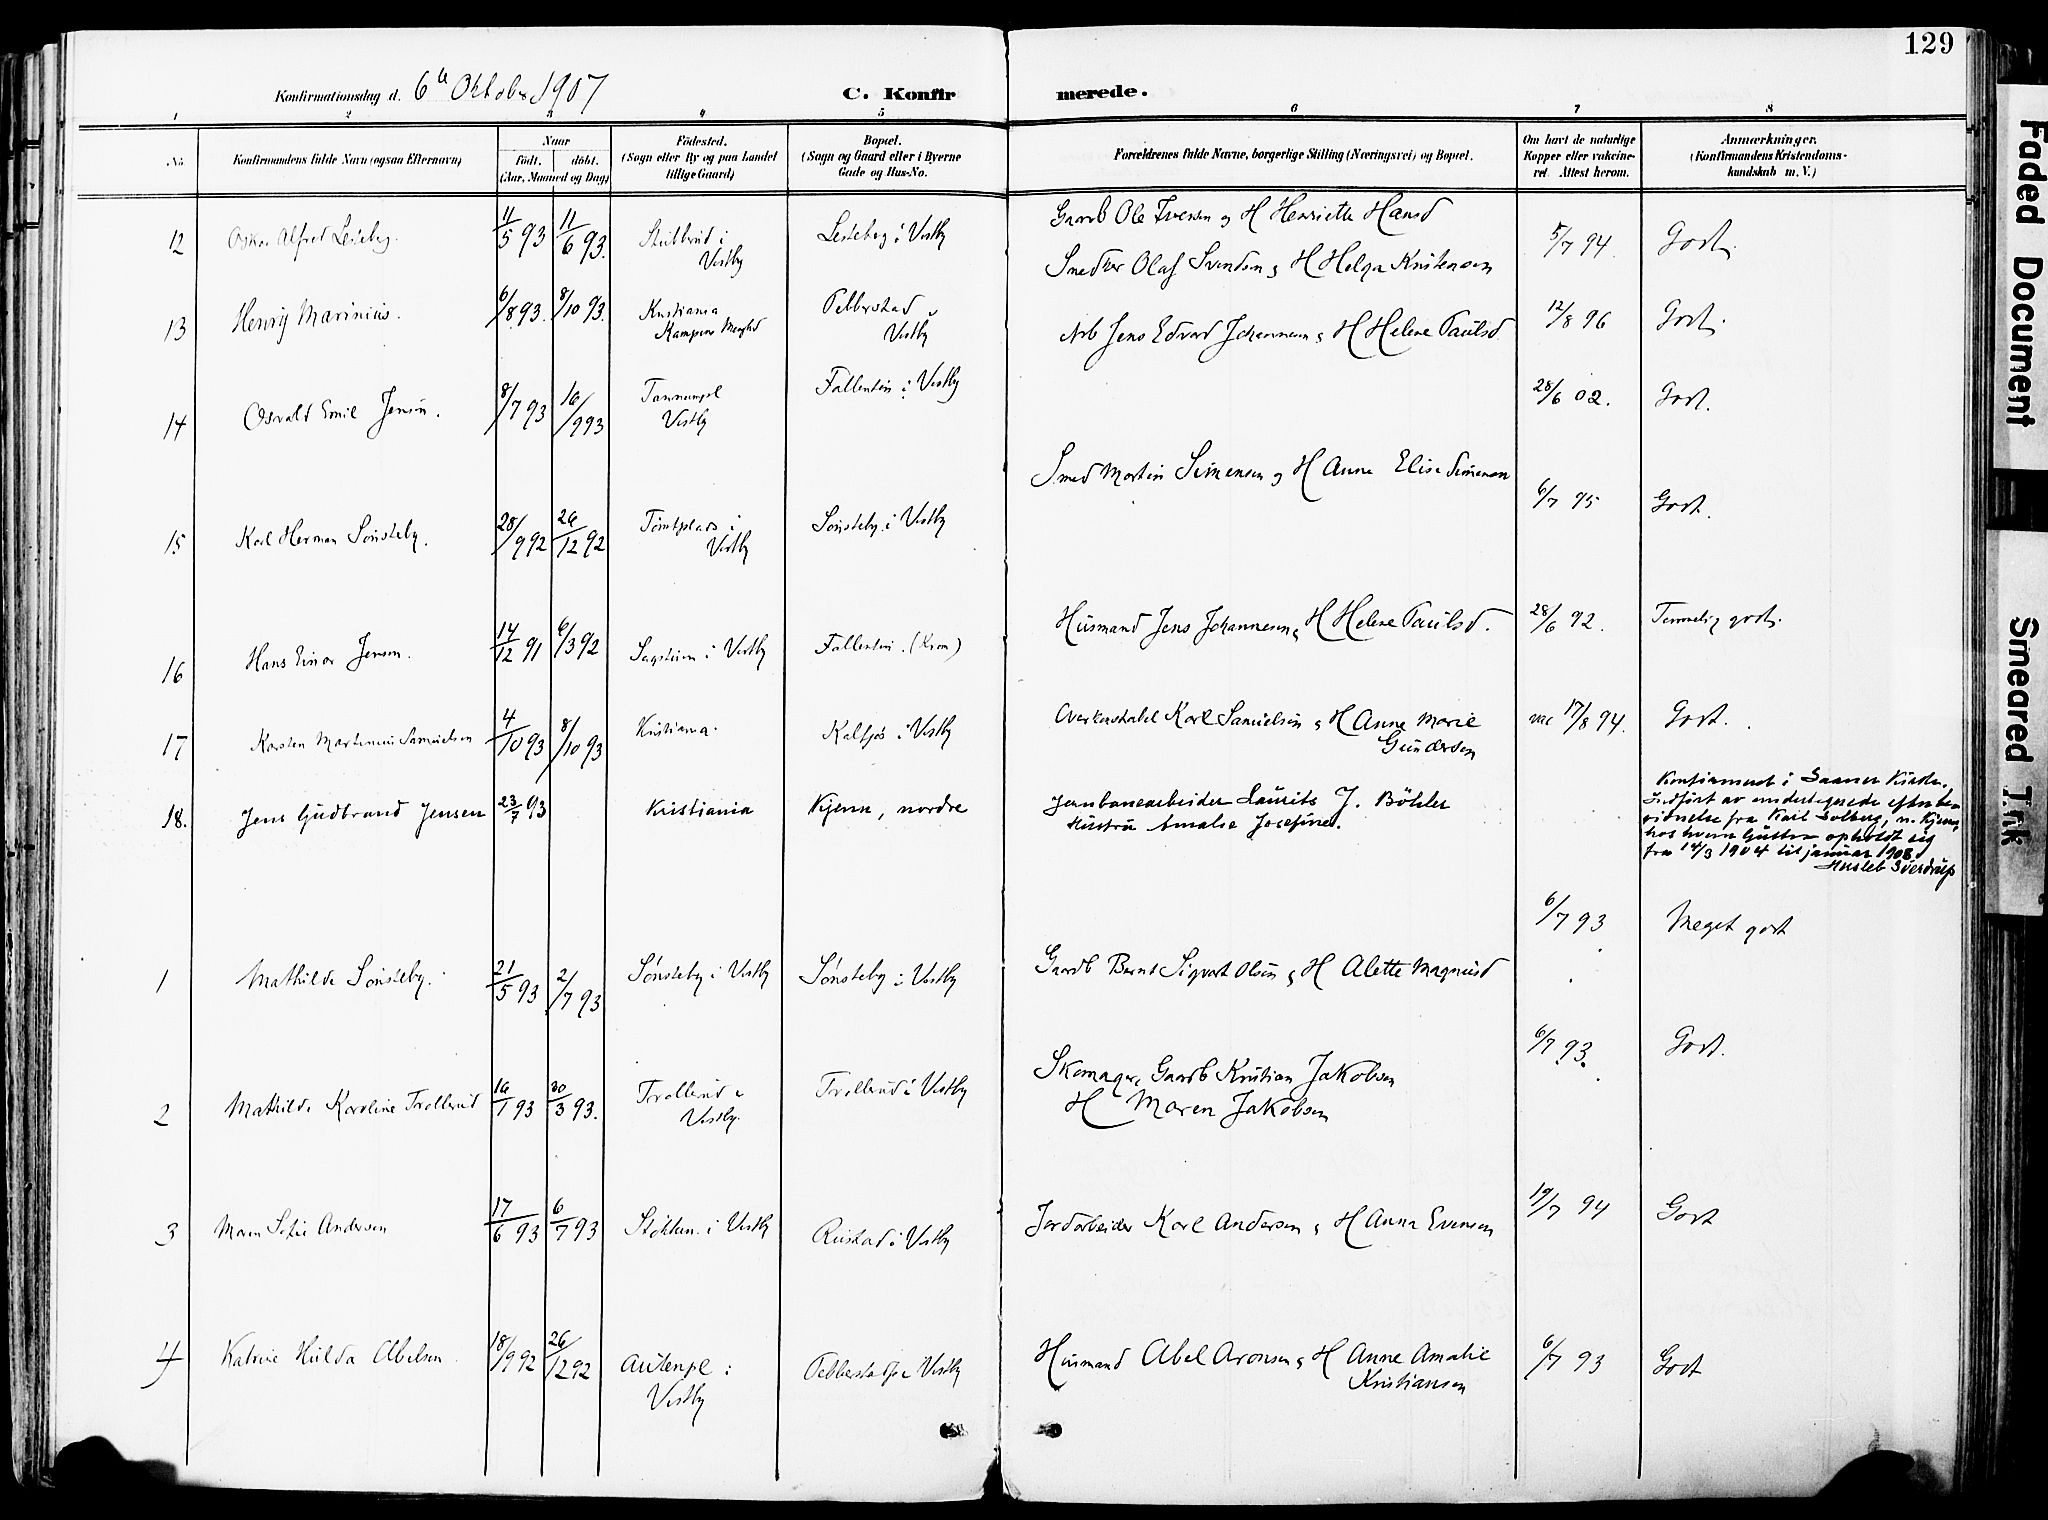 129
Konfirmationsdag d. 6te Oktober 1907
C. Konfir merede.
1 2 3 4 5 6 7 8
No.
Konfirmandens fulde Navn (ogsaa Efternavn)
Naar
födt. döbt.
(Aar, Maaned og Dag)
Födested.
(Sogn eller By og paa Landet
tillige Gaard)
Bopæl.
(Sogn og Gaard eller i Byerne
Gade og Hus-No.
Forældrenes fulde Navne, borgerlige Stilling (Næringsvei) og Bopæl.
Om havt de naturlige
Kopper eller vakcine-
ret. Attest herom.
Anmærkninger.
(Konfirmandens Kristendoms-
kundskab m. V.)
12 Oskar Alfred Lesteberg. 11/5 93 11/6 93. Stubberud i Vestby Lesteberg i Vestby Gaardb Ole Iversen og H Henriette Hansd 5/7 94. Godt.
13 Henrij Marinius. 6/8 93. 8/10 93. Kristiania Kampens Menighd Pebberstad Vestby Smedker Olaf Svendsen & H Helga Kristensen 12/8 96 Godt.
14 Osvald Emil Jensen. 8/7 93 16/9 93 Vestby Fallentin i Vestby Arb Jens Edvard Johannesen & H Helene Paulsd. 28/6 02. Godt.
15 Karl Herman Sønsteby. 28/9 92 26/12 92 Tomtplads i Vestby Sønsteby i Vestby Smed Martin Simensen og H Anne Elise Simensen 6/7 95 Godt.
16 Hans Einar Jensen. 14/12 91 6/3 92 i Vestby Fallentin. (Kron) Husmand Jens Johannesen & H Helene Paulsd. 28/6 92. Temmelig godt.
17 Karsten Martinius Samuelsen 4/10 93 8/10 93 Kristiania. Kalfjøs i Vestby Overkonstabel Karl Samuelsen & H Anne Marie
Gundersen vac 17/8 94. Godt.
18. Jens Gudbrand Jensen 23/7 93 Kristiania Kjenn, nordre Jernbanearbeider Laurits J. Böhler
Hustru Amalie Josefine.
Konfirmeret i Saaner Kirke.
Indført av undertegnede efter be-
vidnelse fra Karl Solberg, n. Kjenn,
hos hvem Gutten opholdt sig
fra 14/3 1904 til januar 1908.
Sverdrup
1 Mathilde Sønsteby. 21/5 93 2/7 93 Sønsteby i Vestby Sønsteby i Vestby Gaardb Bernt Sigvart Olsen & H Alette Magnusd 6/7 93 Meget godt
2 Mathilde Karoline Trollerud 16/1 93 30/3 93. Trollerud i Vestby. Trollerud i Vestby Skomager, Gaardb Kristian Jakobsen
H Maren Jakobsen 6/7 93. Godt.
3 Maren Sofie Andersen 17/6 93 6/7 93 Stökken i Vestby Rustad i Vestby Jordarbeider Karl Andersen & H Anna Evensen 19/7 94 Godt
4 Katrine Hulda Abelsen 18/9 92 26/12 92 Autenpl i Vestby Pebberstadpl Vestby Husmand Abel Aronsen & H Anne Amalie
Kristiansen 6/7 93 Godt
Faded Document
Smeared Tr.k